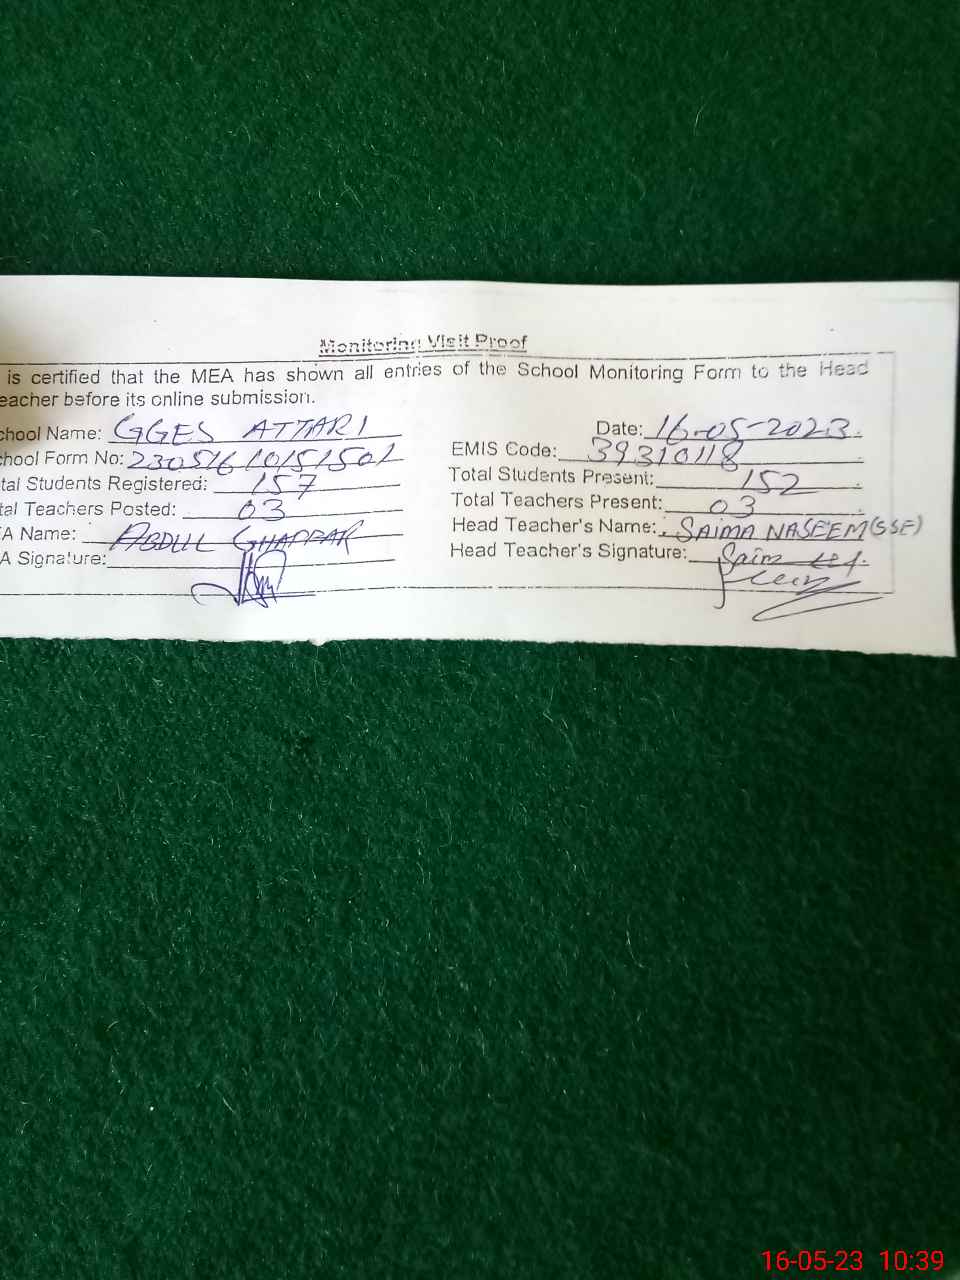 Monitoring Visit Proof
is certified that the MEA has shown all entries of the School Monitoring Form to the Head
eacher before its online submission.
chool Name: GGES ATTARI Date: 16-05-2023
chool Form No: 2305161015150 EMIS Code: 39310118
tal Students Registered: 157 Total Students Present: 152
tal Teachers Posted: 03 Total Teachers Present: 03
A Name: ABDUL GHAFFAR Head Teacher's Name: SAIMA NASEEM (SSE)
A Signature: Head Teacher's Signature:
16-05-23 10:39